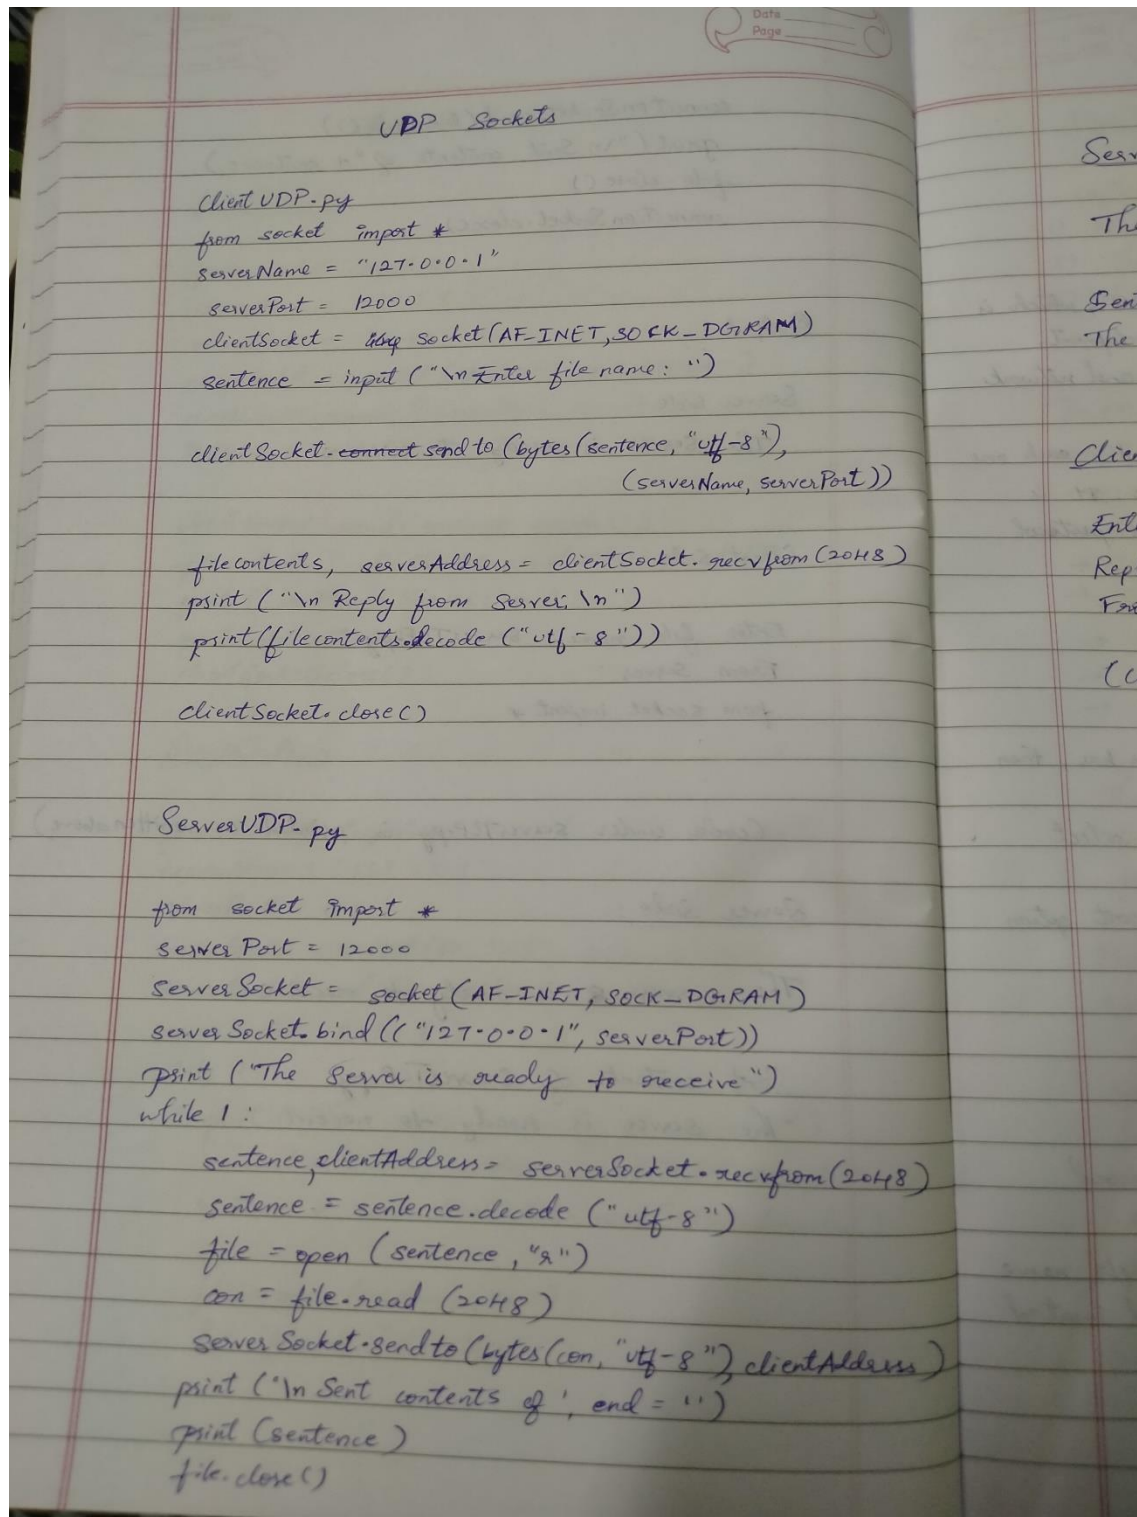 Date
Page
UDP Sockets
Client UDP.py
from socket import *
serverName = "127.0.0.1"
serverPort = 12000
clientSocket = socket(AF_INET, SOCK_DGRAM)
sentence = input ("\n Enter file name: ")
clientSocket. connect sendto (bytes(sentence, "utf-8"),
(serverName, serverPort))
filecontents, serverAddress = clientSocket. recvfrom(2048)
print ("\n Reply from Server: \n")
print(filecontents.decode ("utf-8"))
clientSocket. close()
ServerUDP.py
from socket import *
server Port = 12000
Server Socket = socket (AF_INET, SOCK_DGRAM)
server Socket. bind (("127.0.0.1", serverPort))
print ("The Server is ready to receive")
while 1 :
sentence, clientAddress = serverSocket. recvfrom(2048)
sentence = sentence.decode ("utf-8")
file = open (sentence, "r")
con = file.read (2048)
server Socket.sendto (bytes(con, "utf-8"), clientAddress)
print ('\n Sent contents of ', end = '')
print (sentence)
file.close()
The
The